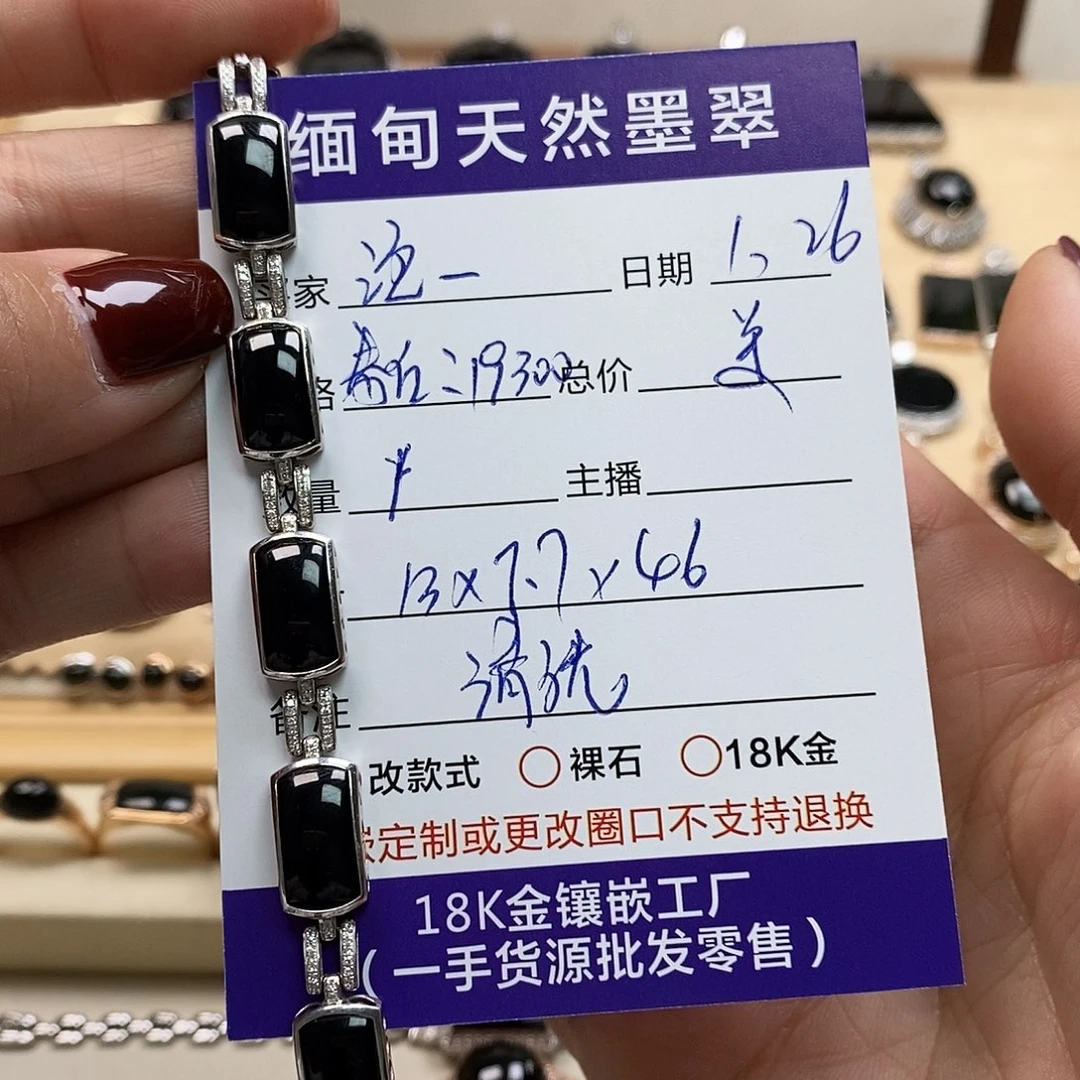 缅甸天然墨翠
家 沈一 日期 1、26
格 19300 总价
数量 1 主播
13x7.7x46
备注 清优
改款式 裸石 18K金
嵌定制或更改圈口不支持退换
18K金镶嵌工厂
(一手货源批发零售)